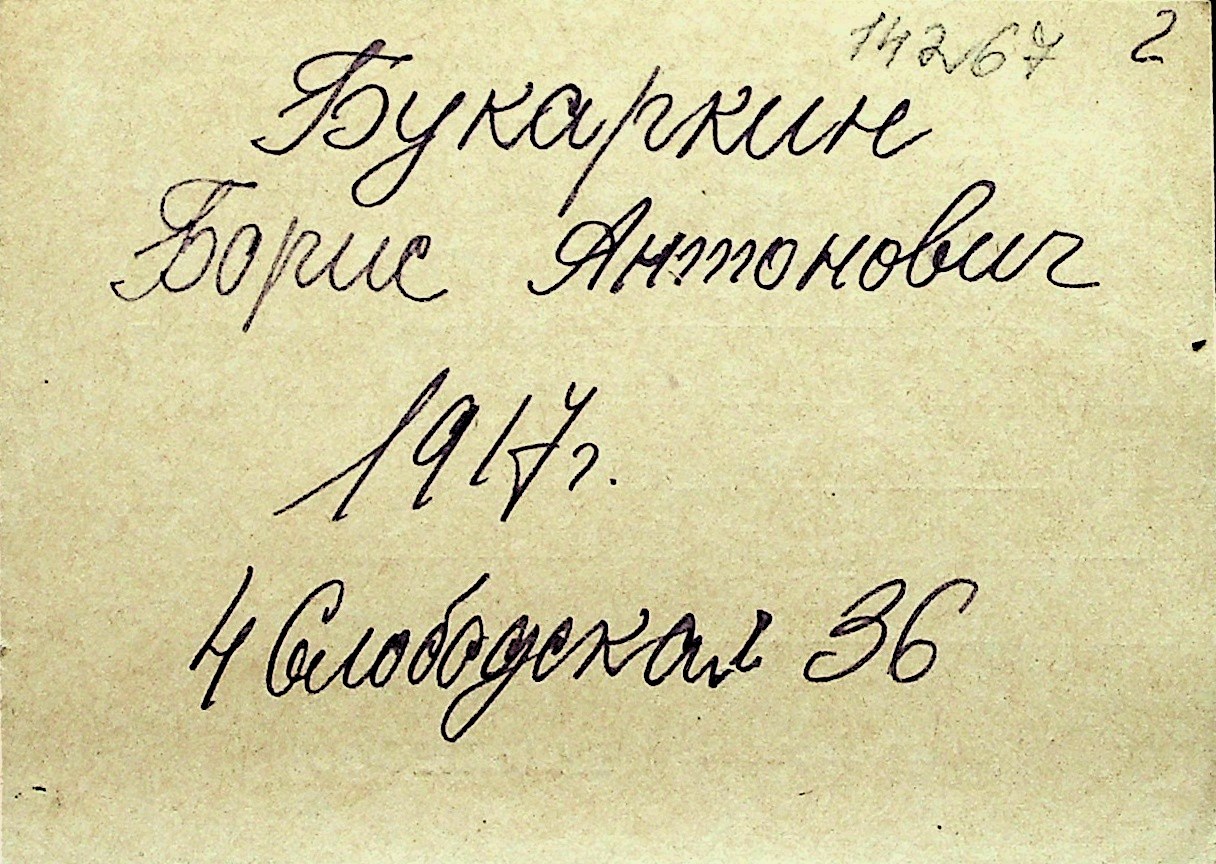 14267 2
Букаркин
Борис Антонович
1917г.
4 Слободская 36